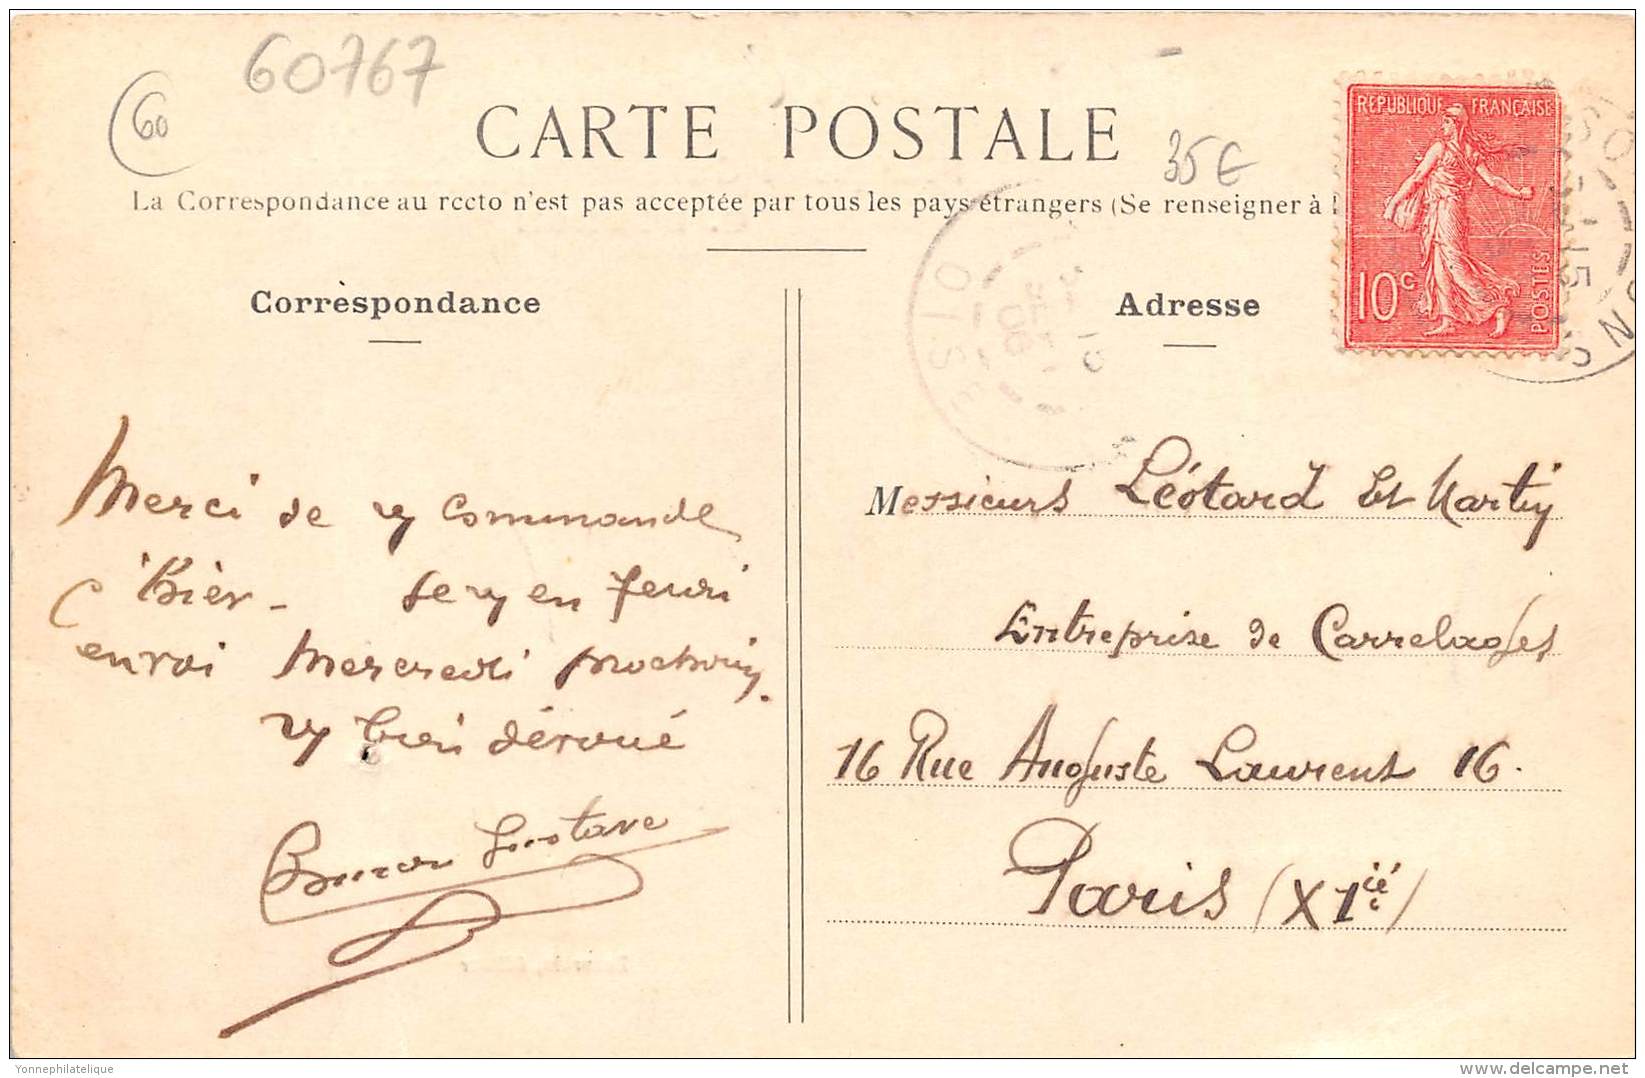 60767
60
CARTE POSTALE
35€
La Correspondance au recto n'est pas acceptée par tous les pays étrangers (Se renseigner à l
REPUBLIQUE FRANÇAISE
10c
POSTES
OISE
06
15
Corrèspondance
Adresse
Merci de commande
envoi Mercredi prochain.
dévoué
Gustave
Messieurs Léotard Et Martin
Entreprise de Carrelages
16 Rue Auguste Laurent 16.
Paris (XIiè)
Yonnephilatelique
delcampe.net